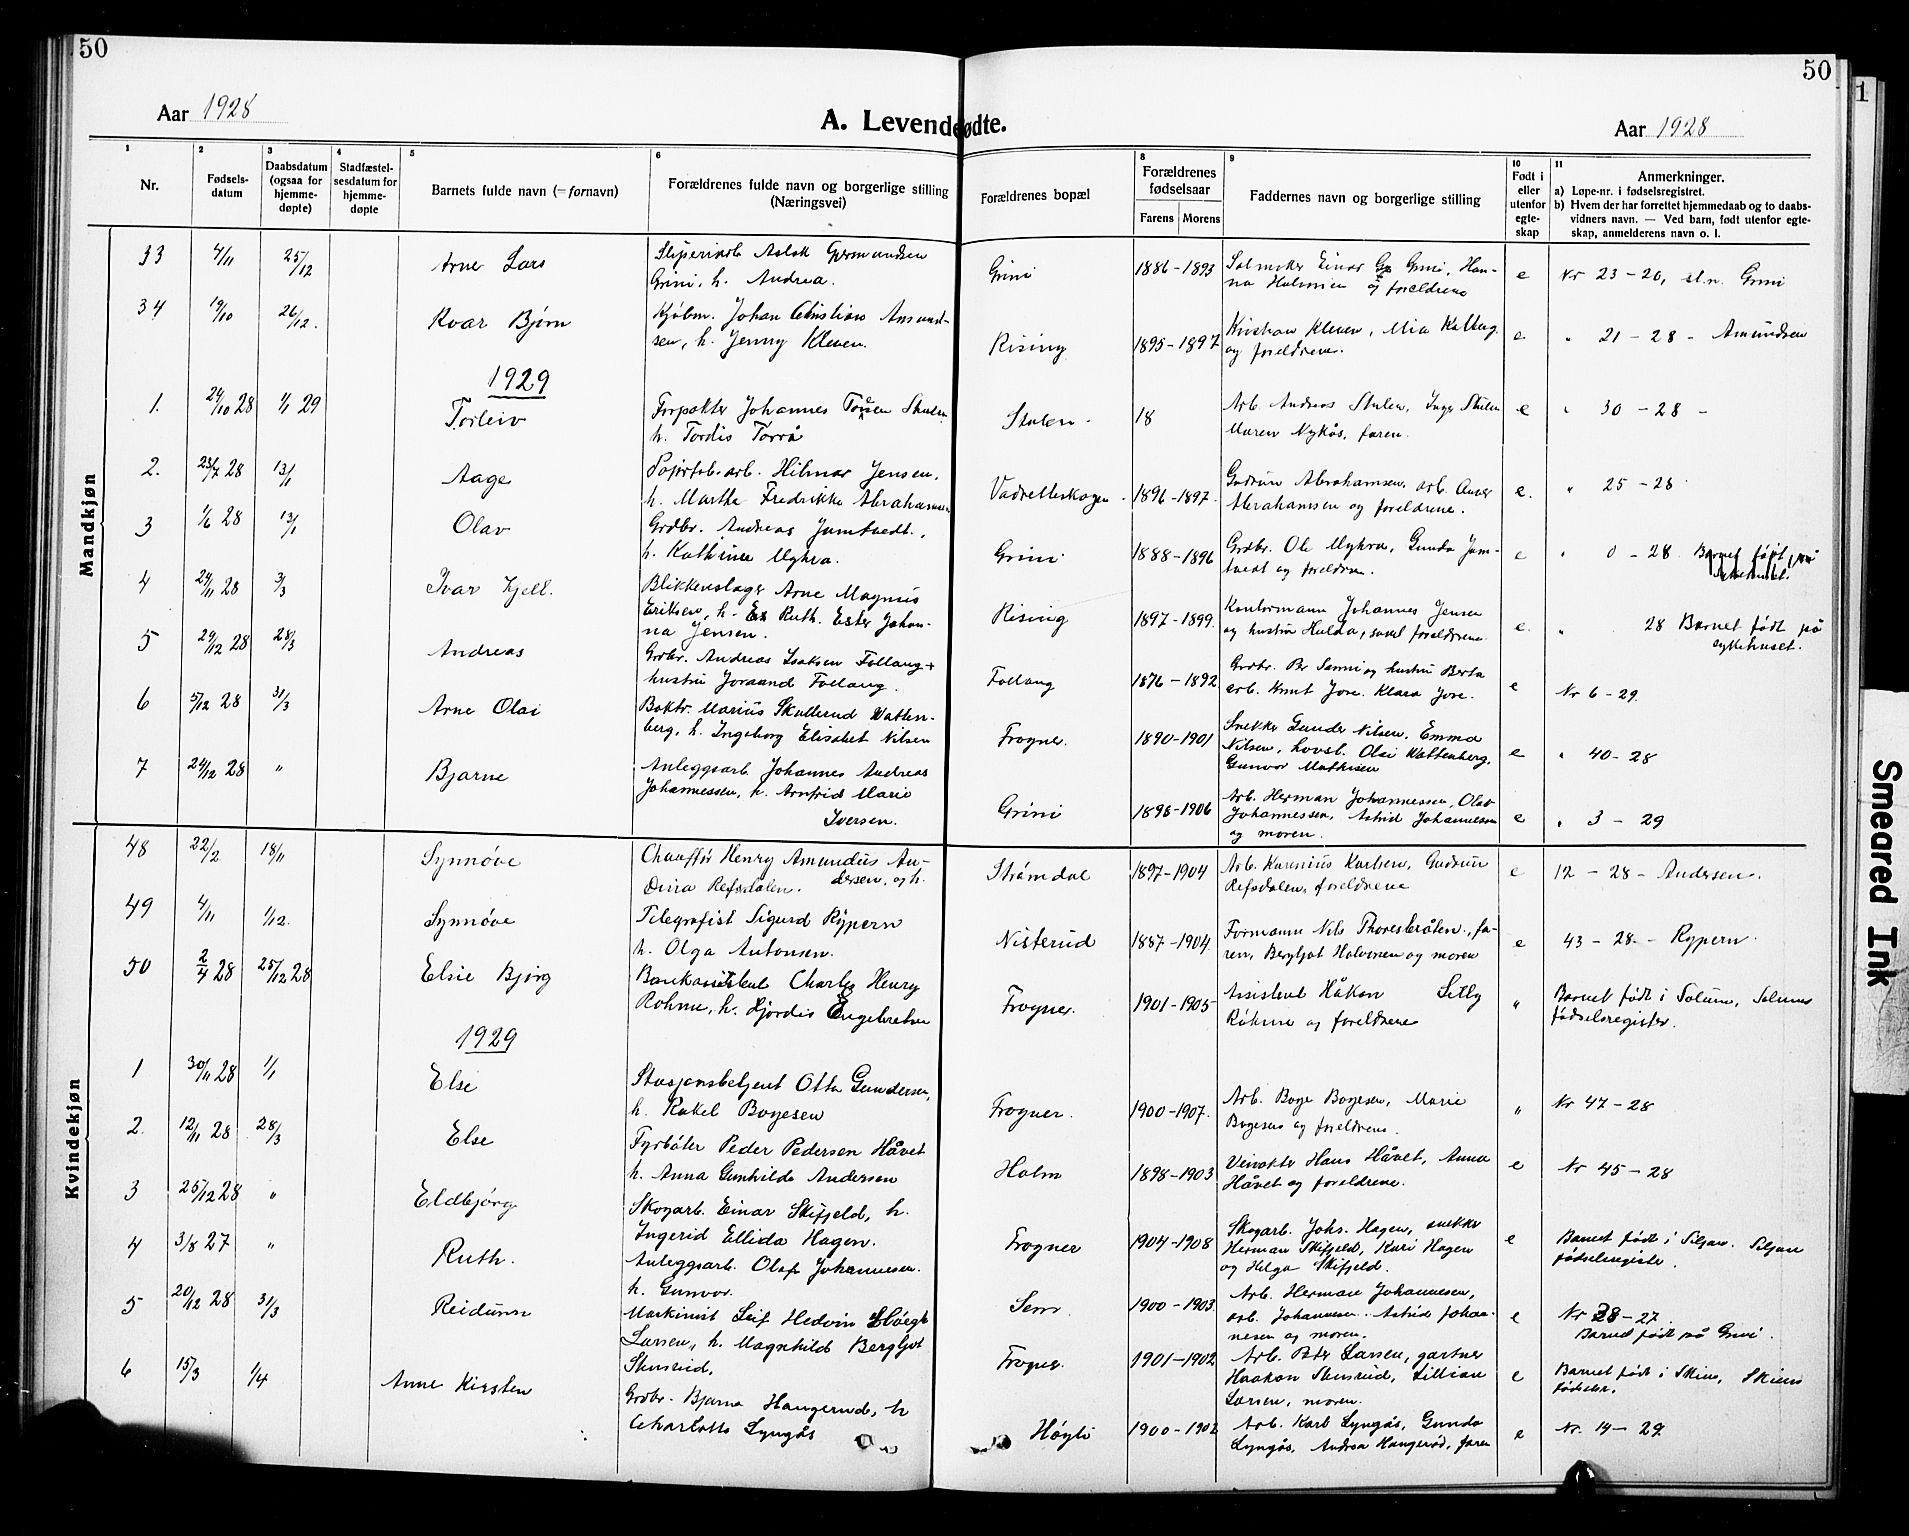 50
50
1
Aar 1928
A. Levendefødte.
Aar 1928
1 Nr.
2 Fødsels-datum
3 Daabsdatum (ogsaa for hjemme-døpte)
4 Stadfæstel-sesdatum for hjemme-døpte
5 Barnets fulde navn (= fornavn)
6 Forældrenes fulde navn og borgerlige stilling (Næringsvei)
Forældrenes bopæl
8 Forældrenes fødselsaar
Farens Morens
9 Faddernes navn og borgerlige stilling
10 Født i eller utenfor egte-skap
11 Anmerkninger.
a) Løpe-nr. i fødselsregistret.
b) Hvem der har forrettet hjemmedaab og to daabs-
vidners navn. — Ved barn, født utenfor egte-
skap, anmelderens navn o. l.
Mandkjøn
33 4/11 25/12 Arne Lars
Sliperiarb. Aslak Gjermundsen
Grini, h. Andrea.
Grini 1886-1893
Einar Grini, Han-
na Halvorsen og foreldrene
e Nr 23-20, sl.n. Grini
34 19/10 26/12. Roar Bjørn
Kjøbm. Johan Christian Amund-
sen, h. Jenny Kleven.
Rising 1895-1897
Kristian Kleven, Mia
og foreldrene.
e " 21-28 - Amundsen
1929
1. 24/10 28 1/1 29 Torleiv
Forpakter Johannes Stulen
h. Tordis
Stulen. 18
Arb. Andreas Stulen, Inga Stulen
Maren Nykås, faren.
e " 30-28 -
2. 23/7 28 13/1 Aage
arb. Hilmar Jensen,
h. Martha Fredrikke Abrahamsen
1896-1897.
Gudrun Abrahamsen, arb.
Abrahamsen og foreldrene.
e. " 25-28.
3 1/6 28 13/1 Olav
Grdbr. Andreas Jamtvedt.,
h. Kathrine Myhra.
Grini 1888-1896
Grdbr. Ole Myhra, Gunda Jam-
tvedt og foreldrene.
e " 0-28 Barnet født på
sykehuset.
4 24/11 28 3/3 Ivar Kjell.
Blikkenslager Arne Magnus
Eriksen, h. Ruth. Ester Johan-
na Jensen.
Rising 1897-1899.
Kontormann Johannes Jensen
og hustru Hulda, samt foreldrene.
e. " 28 Barnet født på
sykehuset.
5 29/12 28 28/3 Andreas
Grdbr. Andreas Isaksen Follaug +
hustru Joraand Follaug.
Follaug 1876-1892
Grdbr. Per og hustru Berta
arb. Knut Jore. Klara Jore.
e Nr 6-29.
6 5/12 28 31/3 Arne Olai
Boktr. Marius Skullerud Watten-
berg, h. Ingeborg Elisabet Nilsen
Frogner. 1890-1901
Snekker Gunder Nilsen, Emma
Nilsen, Olai Wattenberg,
Gunvor Mathisen
e " 40-28
7 24/12 28 " Bjarne
Anleggsarb. Johannes Andreas
Johannessen, h. Arnfrid Marie
Iversen.
Grini 1898-1906
Arb. Herman Johannessen, Olav
Johannessen, Astrid Johannessen
og moren.
e " 3-29
Kvindekjøn
48 22/2 18/11 Synnøve
Chauffør Henry Amundus An-
dersen, og h.
Dina Refsdalen.
Strømdal 1897-1904
Arb. Karenius Karlsen, Gudrun
Refsdalen, foreldrene
e 12-28-Andersen.
49 4/11 1/12. Synnøve
Telegrafist Sigurd Rypern
h. Olga Antonsen.
Nisterud 1887-1904
Formann Nils Thoresbråten., fa-
ren, Bergljot Halvorsen og moren
e 43-28.- Rypern.
50 2/4 28 25/12 28 Elsie Bjørg
Bankassistent Charles Henry
Rohme, h. Hjordis Engebretsen
Frogner. 1901-1905
Assistent Håkon
og foreldrene
" Barnet født i Solum, Solums
fødselsregister.
1929
1 30/11 28 1/1 Else
Stasjonsbetjent Otto Gundersen,
h. Rakel Bogesen
Frogner. 1900-1907.
Arb. Boge Bogesen, Marie
Bogesen og foreldrene.
" Nr 47-28
2. 12/11 28 28/3 Else
Fyrbøter Peder Pedersen Håvet
h. Anna Gunhilde Andersen
Holm 1898-1903
Veivokter Hans Håvet, Anna
Håvet og foreldrene.
e Nr 45-28
3 25/12 28 " Eldbjørg
Skogarb. Einar Skifjeld, h.
Ingerid Ellida Hagen.
Frogner 1904-1908
Skogarb. Johs. Hagen, snekker
Herman Skifjeld, Kari Hagen
og Helga Skifjeld.
e Barnet født i Siljan. Siljan
fødselsregister.
4 3/8 27 " Ruth.
Anleggsarb. Olaf Johannesen.
h. Gunvor.
Sem. 1900-1903.
Arb. Herman Johannesen,
arb. Johannesen. Astrid Johan-
nesen og moren.
e Nr 38-27
Barnet født på Grini.
5 20/12 28 31/3 Reidunn
Maskinist Leif Hedvin Høegh
Larsen, h. Magnhild Bergljot
Stensrud,
Frogner. 1901-1902
Arb. Peder Larsen, gartner
Haakon Stensrud, Lillian
Larsen, moren.
e Barnet født i Skien, Skiens
fødselsr.
6 15/3 1/4 Anne Kirsten
Grdbr. Bjarne Hangerud, h
Charlotte Lyngås
Høgli 1900-1902
Arb. Karl Lyngås, Gunda
Lyngås, Andrea Hangerød, faren
e Nr. 14-29.
Smeared Ink